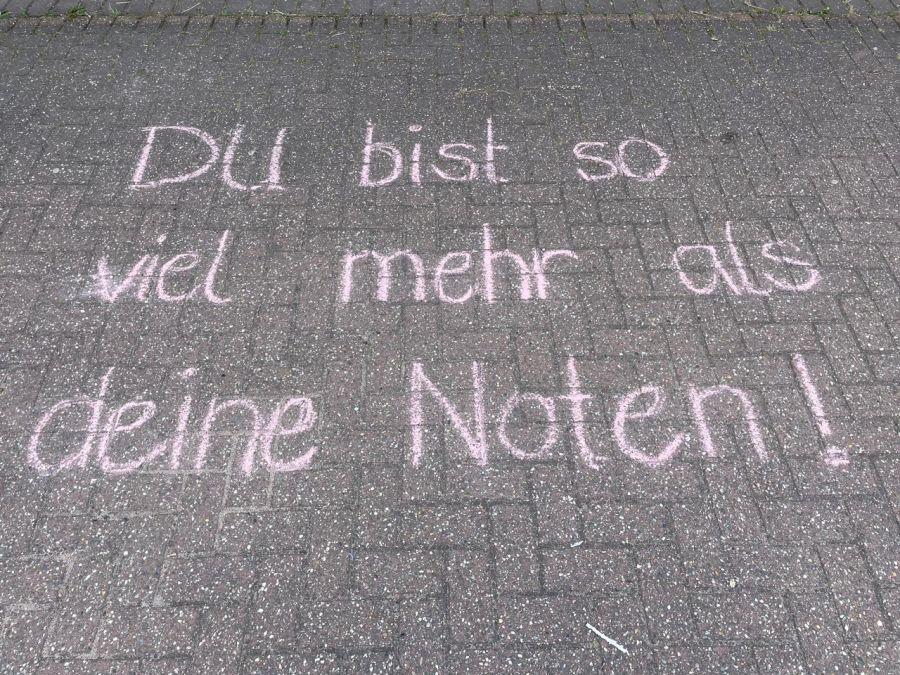 DU bist so
viel mehr als
deine Noten!